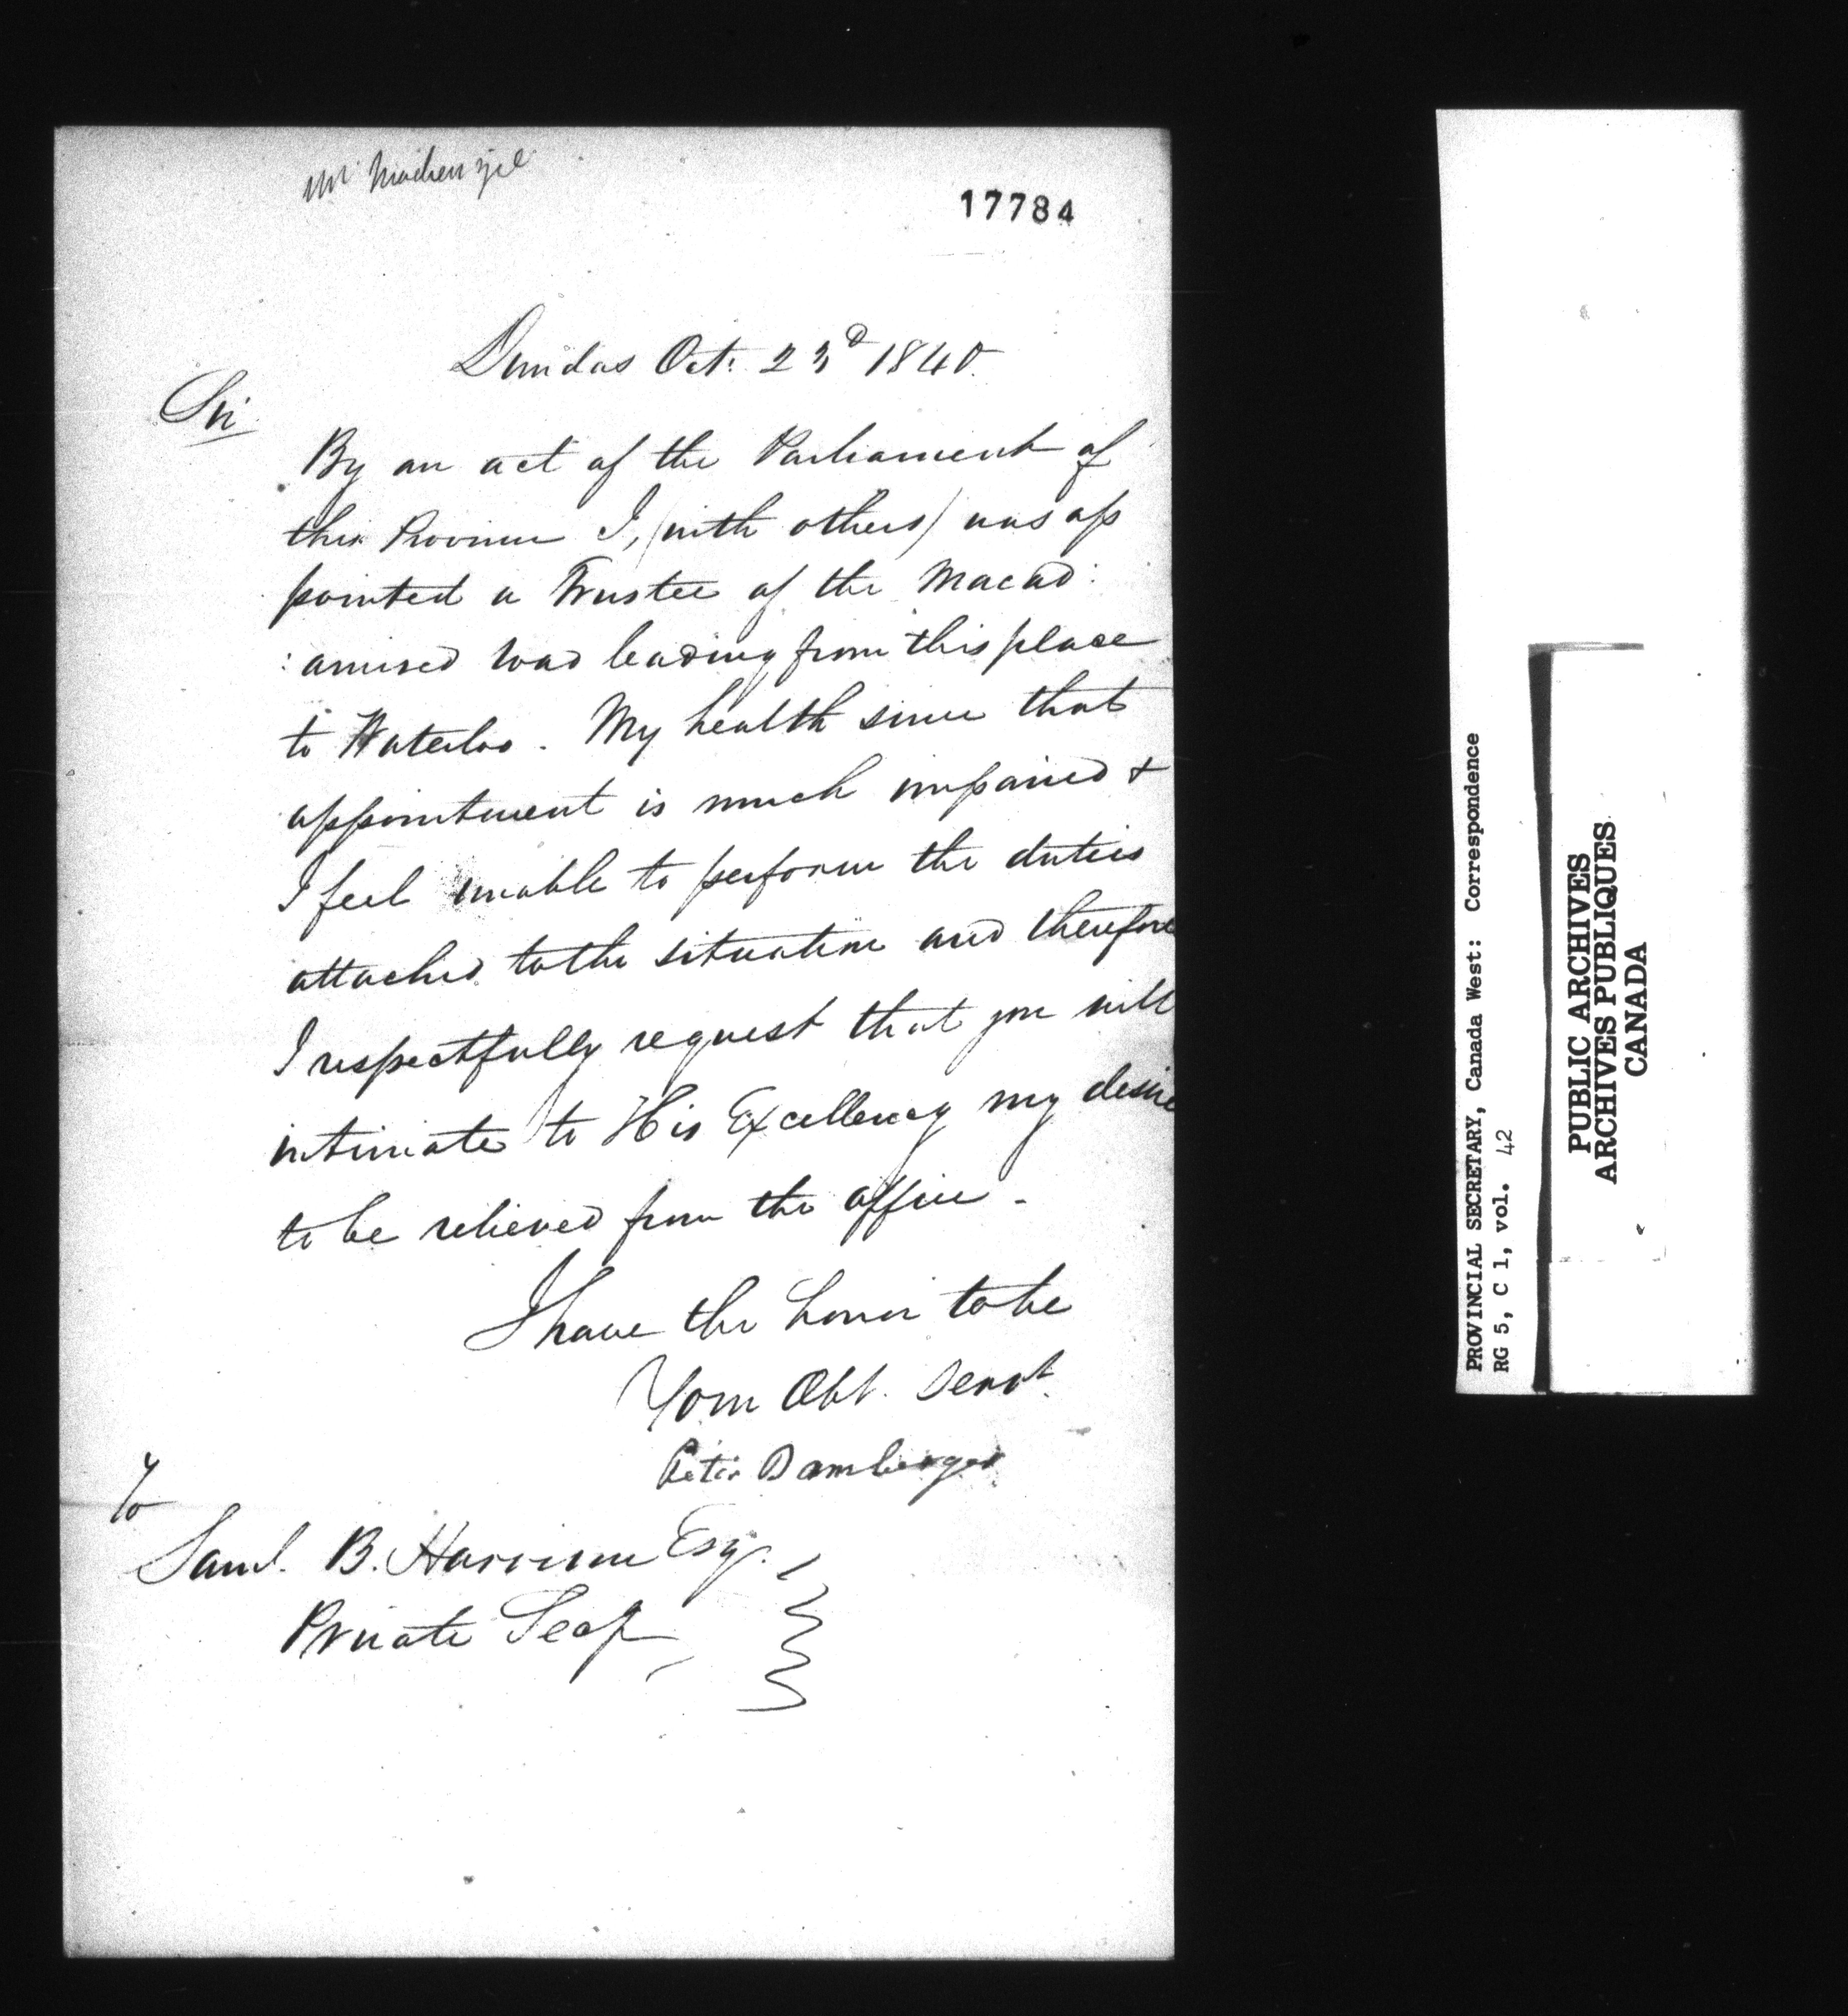 Mr Mackenzie
17784
Dundas Oct. 23d 1840.
Sir
By an act of the Parliament of
this Province I, (with others) was ap
pointed a Trustee of the Macad:
:amised road leading from this place
to Waterloo. My health since that
appointment is much impaired &
I feel unable to perform the duties
attached to the situation and therefore
I respectfully request that you will
intimate to His Excellency my desire
to be relieved from the office -
I have the honor to be
Your Obt. Servt.
Peter Bamberger
To
Saml. B. Harrison Esqr.
Private Secy
PROVINCIAL SECRETARY, Canada West: Correspondence
RG 5, C 1, vol. 42
PUBLIC ARCHIVES
ARCHIVES PUBLIQUES
CANADA